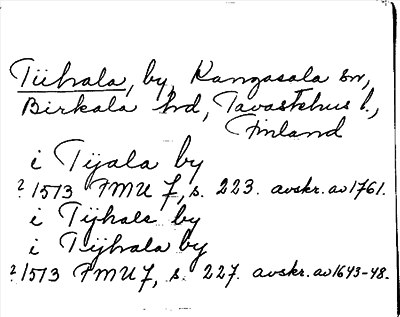 Tiihala, by, Kangasala sn,
Birkala hd, Tavastehus l.,
Finland
i Tijala by
? 1513 FMU 7, s. 223. avskr. av 1761.
i Tijhale by
i Tijhala by
? 1513 FMU 7, s. 227. avskr. av 1643-48.